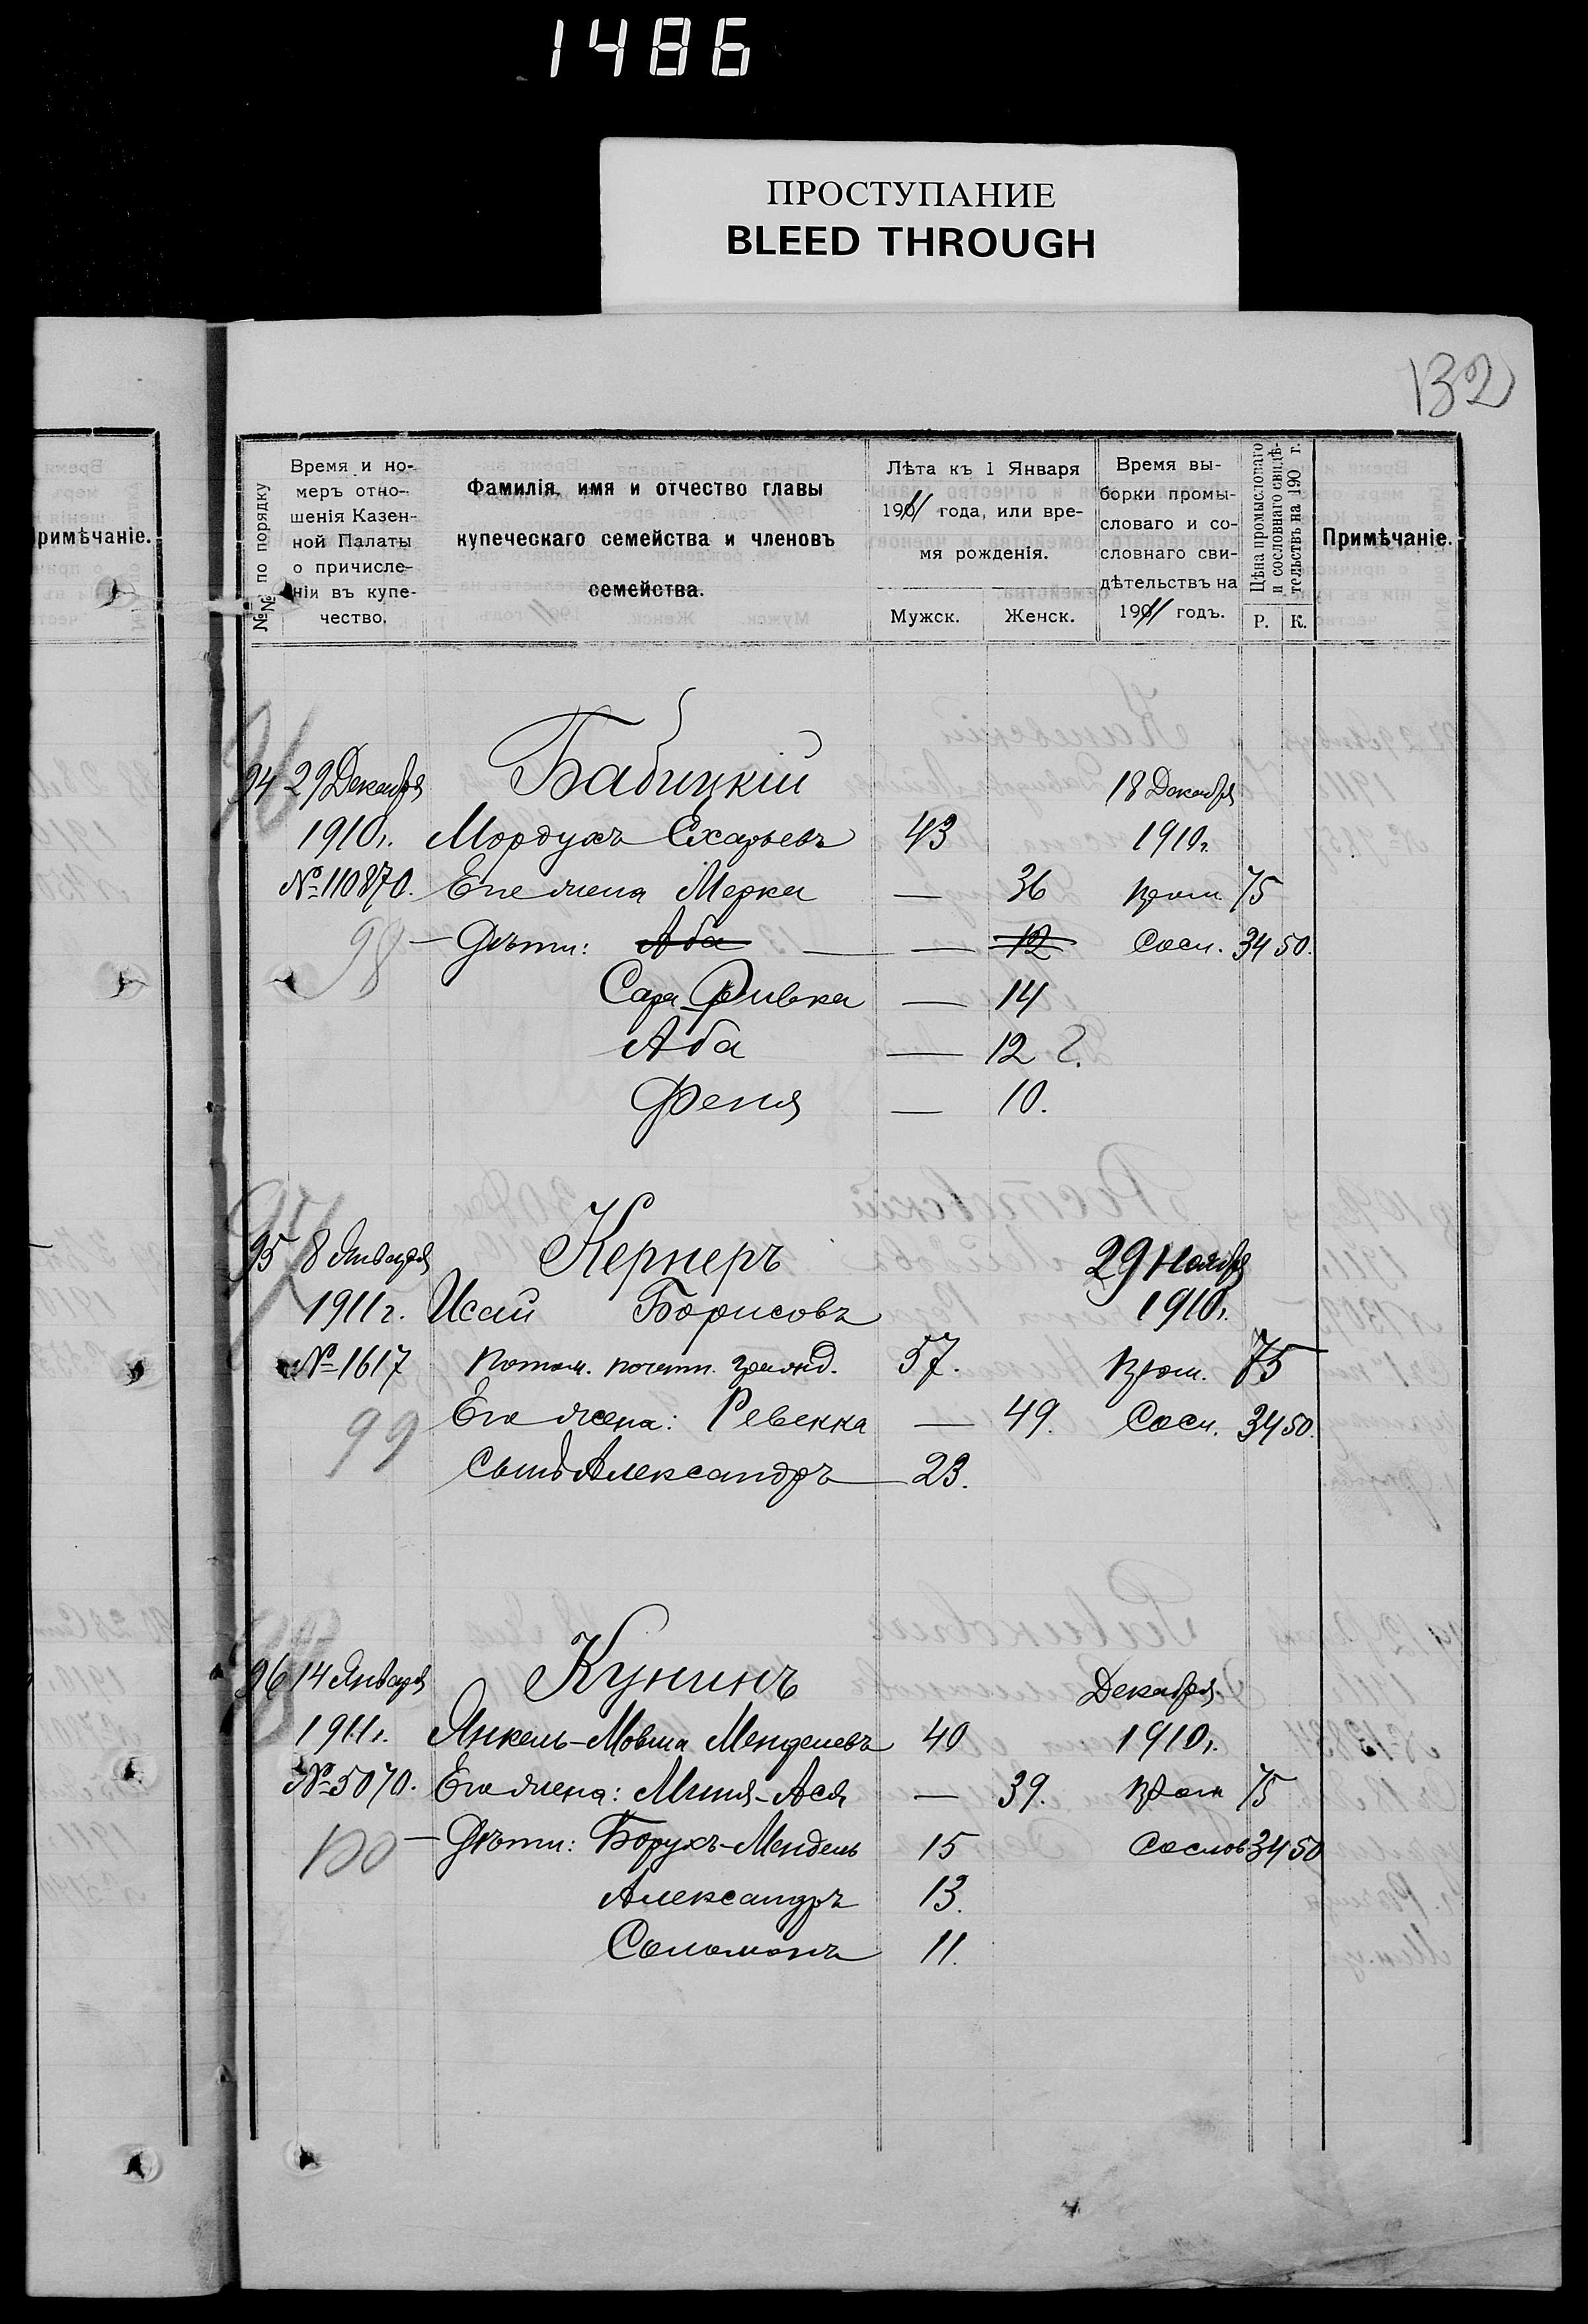 1486
ПРОСТУПАНИЕ
BLEED THROUGH
132
Примѣчаніе.
№№ по порядку
Время и но-
меръ отно-
шенія Казен-
ной Палаты
о причисле-
ніи въ купе-
чество.
Фамилія, имя и отчество главы
купеческаго семейства и членовъ
семейства.
Лѣта къ 1 Января
1911 года, или вре-
мя рожденія.
Мужск. Женск.
Время вы-
борки промы-
словаго и со-
словнаго сви-
дѣтельствъ на
1911 годъ.
Цѣна промысловаго
и сословнаго свидѣ-
тельствъ на 190 г.
Р. К.
Примѣчаніе.
94 29 Декабря Бабицкій 18 Декабря
1910г. Мордухъ Схарьевъ 43 1910г.
№ 110870. Его жена Мерка — 36 пром. 75
98 — Дѣти: Аба — 12 Сосл. 34 50.
Сара Ривка — 14
Аба — 12 г.
Феня — 10.
95 8 Января Кернеръ 29 Ноября
1911г. Исай Борисовъ 1910г.
№ 1617 потом. почетн. гражд. 57. пром. 75
99 Его жена: Ревекка — 49. Сосл. 34 50.
Сынъ Александръ — 23.
96 14 Января Кунинъ Декабря
1911г. Янкель-Мовша Менделевъ 40 1910г.
№ 5070. Его жена: Миня-Ася — 39. пром 75
100 — Дѣти: Борухъ-Мендель 15 Сослов 34 50
Александръ 13.
Соломонъ 11.